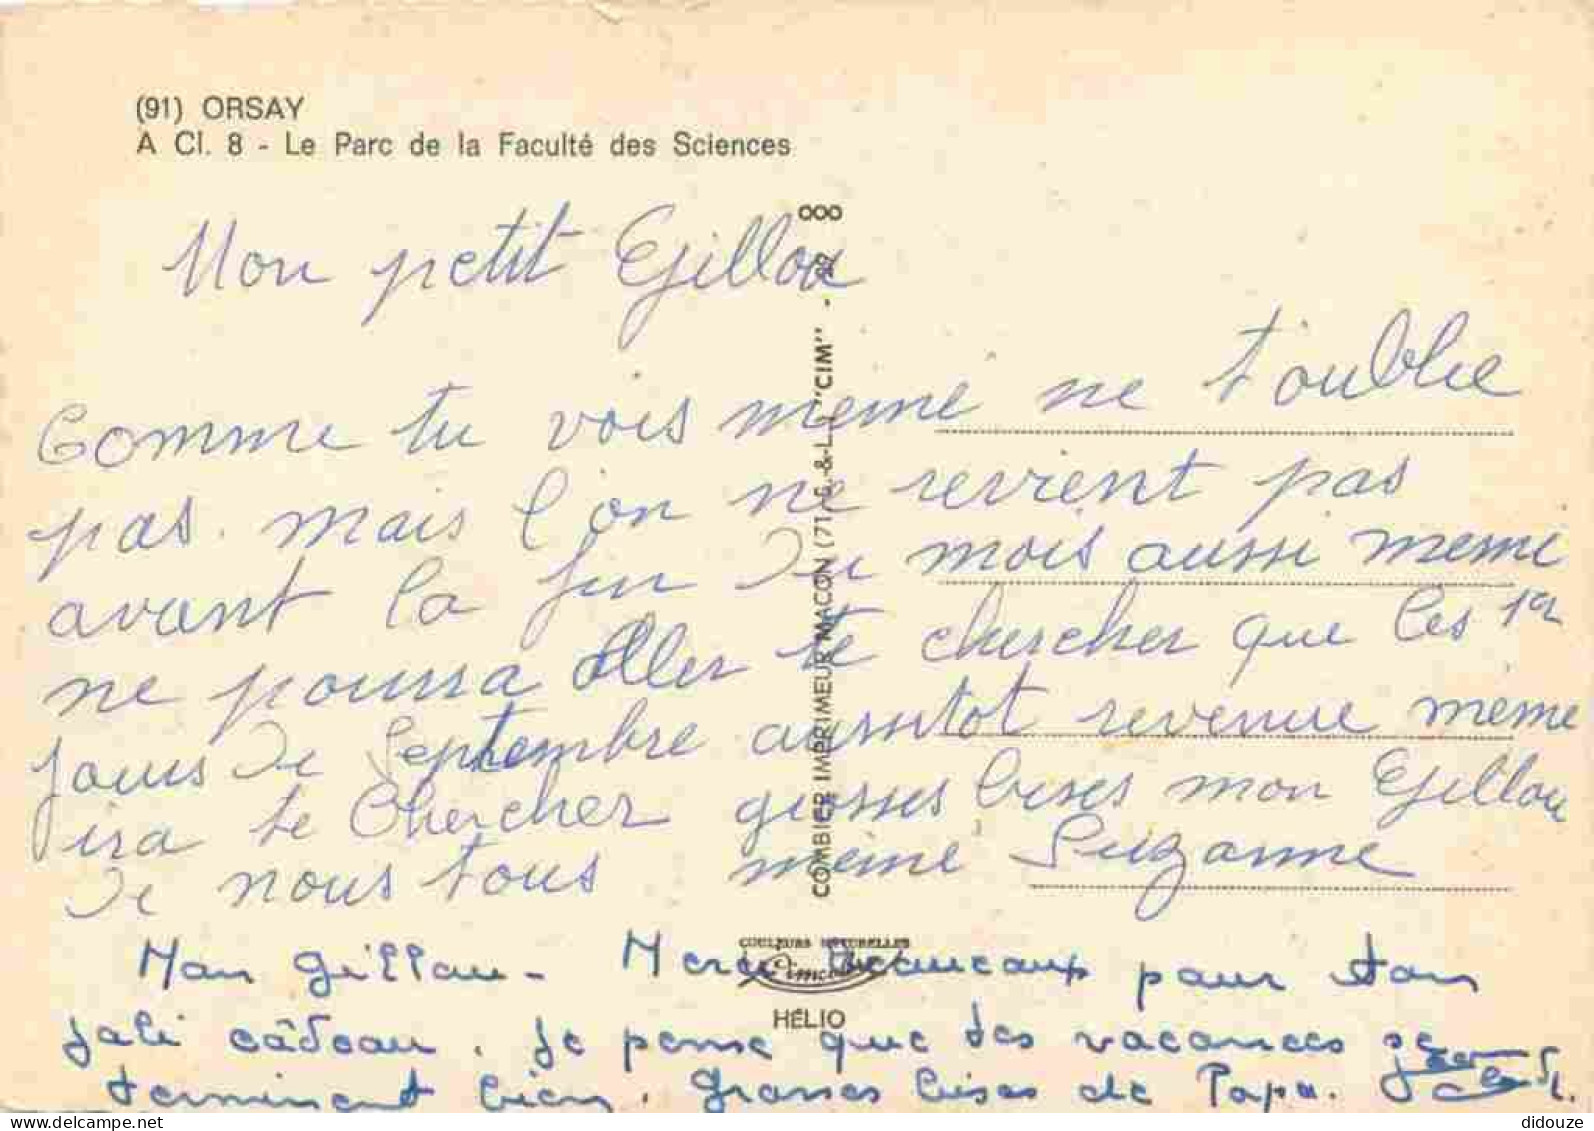 (91) ORSAY
A Cl. 8 - Le Parc de la Faculté des Sciences
Mon petit Gillou
Comme tu vois mémé ne t'oublie
pas. mais l'on ne revient pas
avant la fin du mois aussi meme
ne pourra aller te chercher que les 1er
jours de Septembre aussitot revenue mémé
ira te Chercher grosses bises mon Gillou
de nous tous mémé Suzanne
Mon Gillou - Merci Beaucoup pour ton
joli câdeau. Je pense que des vacances se
terminent bien. Grosses bises de Papa.
COMBIER IMPRIMEUR MACON (71, S.-&-L.) "CIM" -
COULEURS NATURELLES
HÉLIO
didouze
delcampe.net